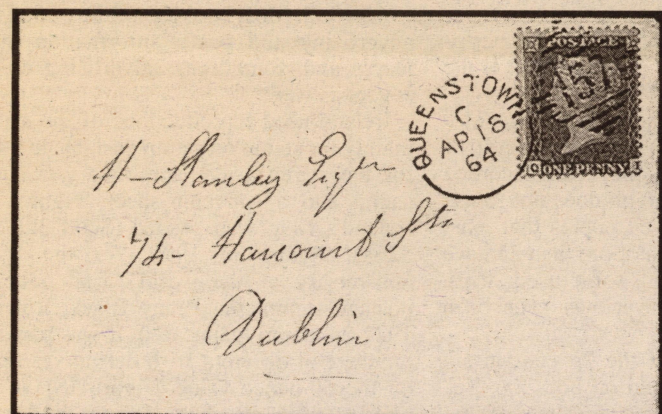 POSTAGE
157
ONE PENNY
QUEENSTOWN
C
AP 18
64
H- Stanley Esqre
74- Harcourt St.
Dublin